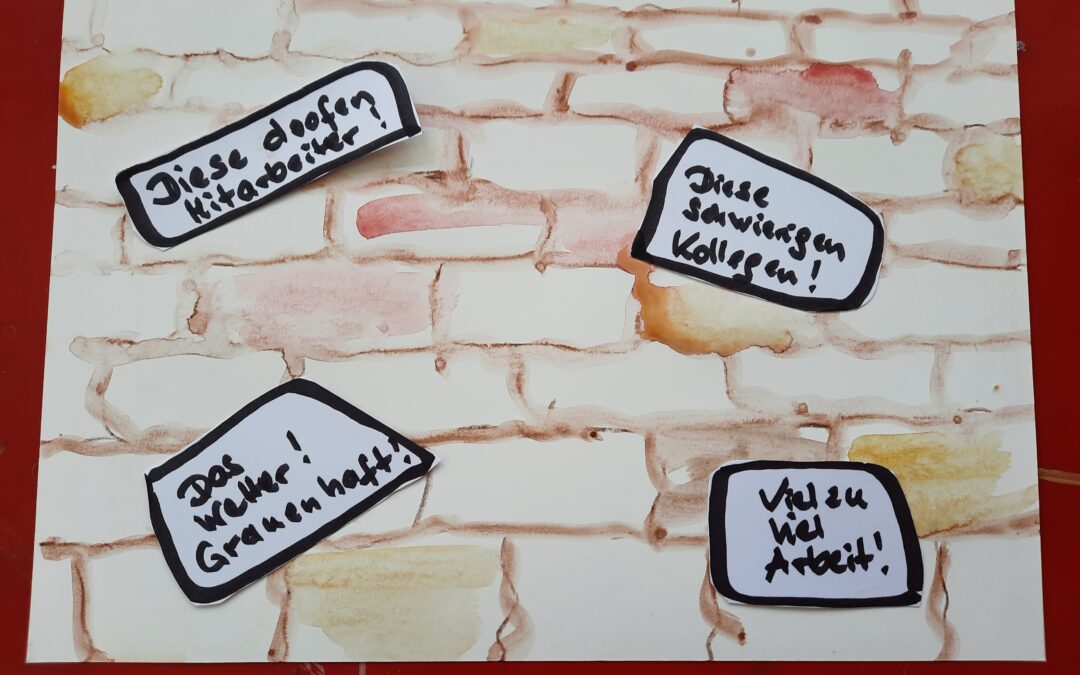 Diese doofen
Mitarbeiter!
Diese
schwierigen
Kollegen!
Das
Wetter!
Grauenhaft!
Viel zu
viel
Arbeit!